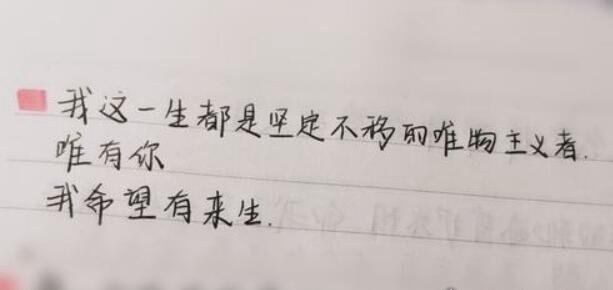 我这一生都是坚定不移的唯物主义者.
唯有你
我希望有来生.